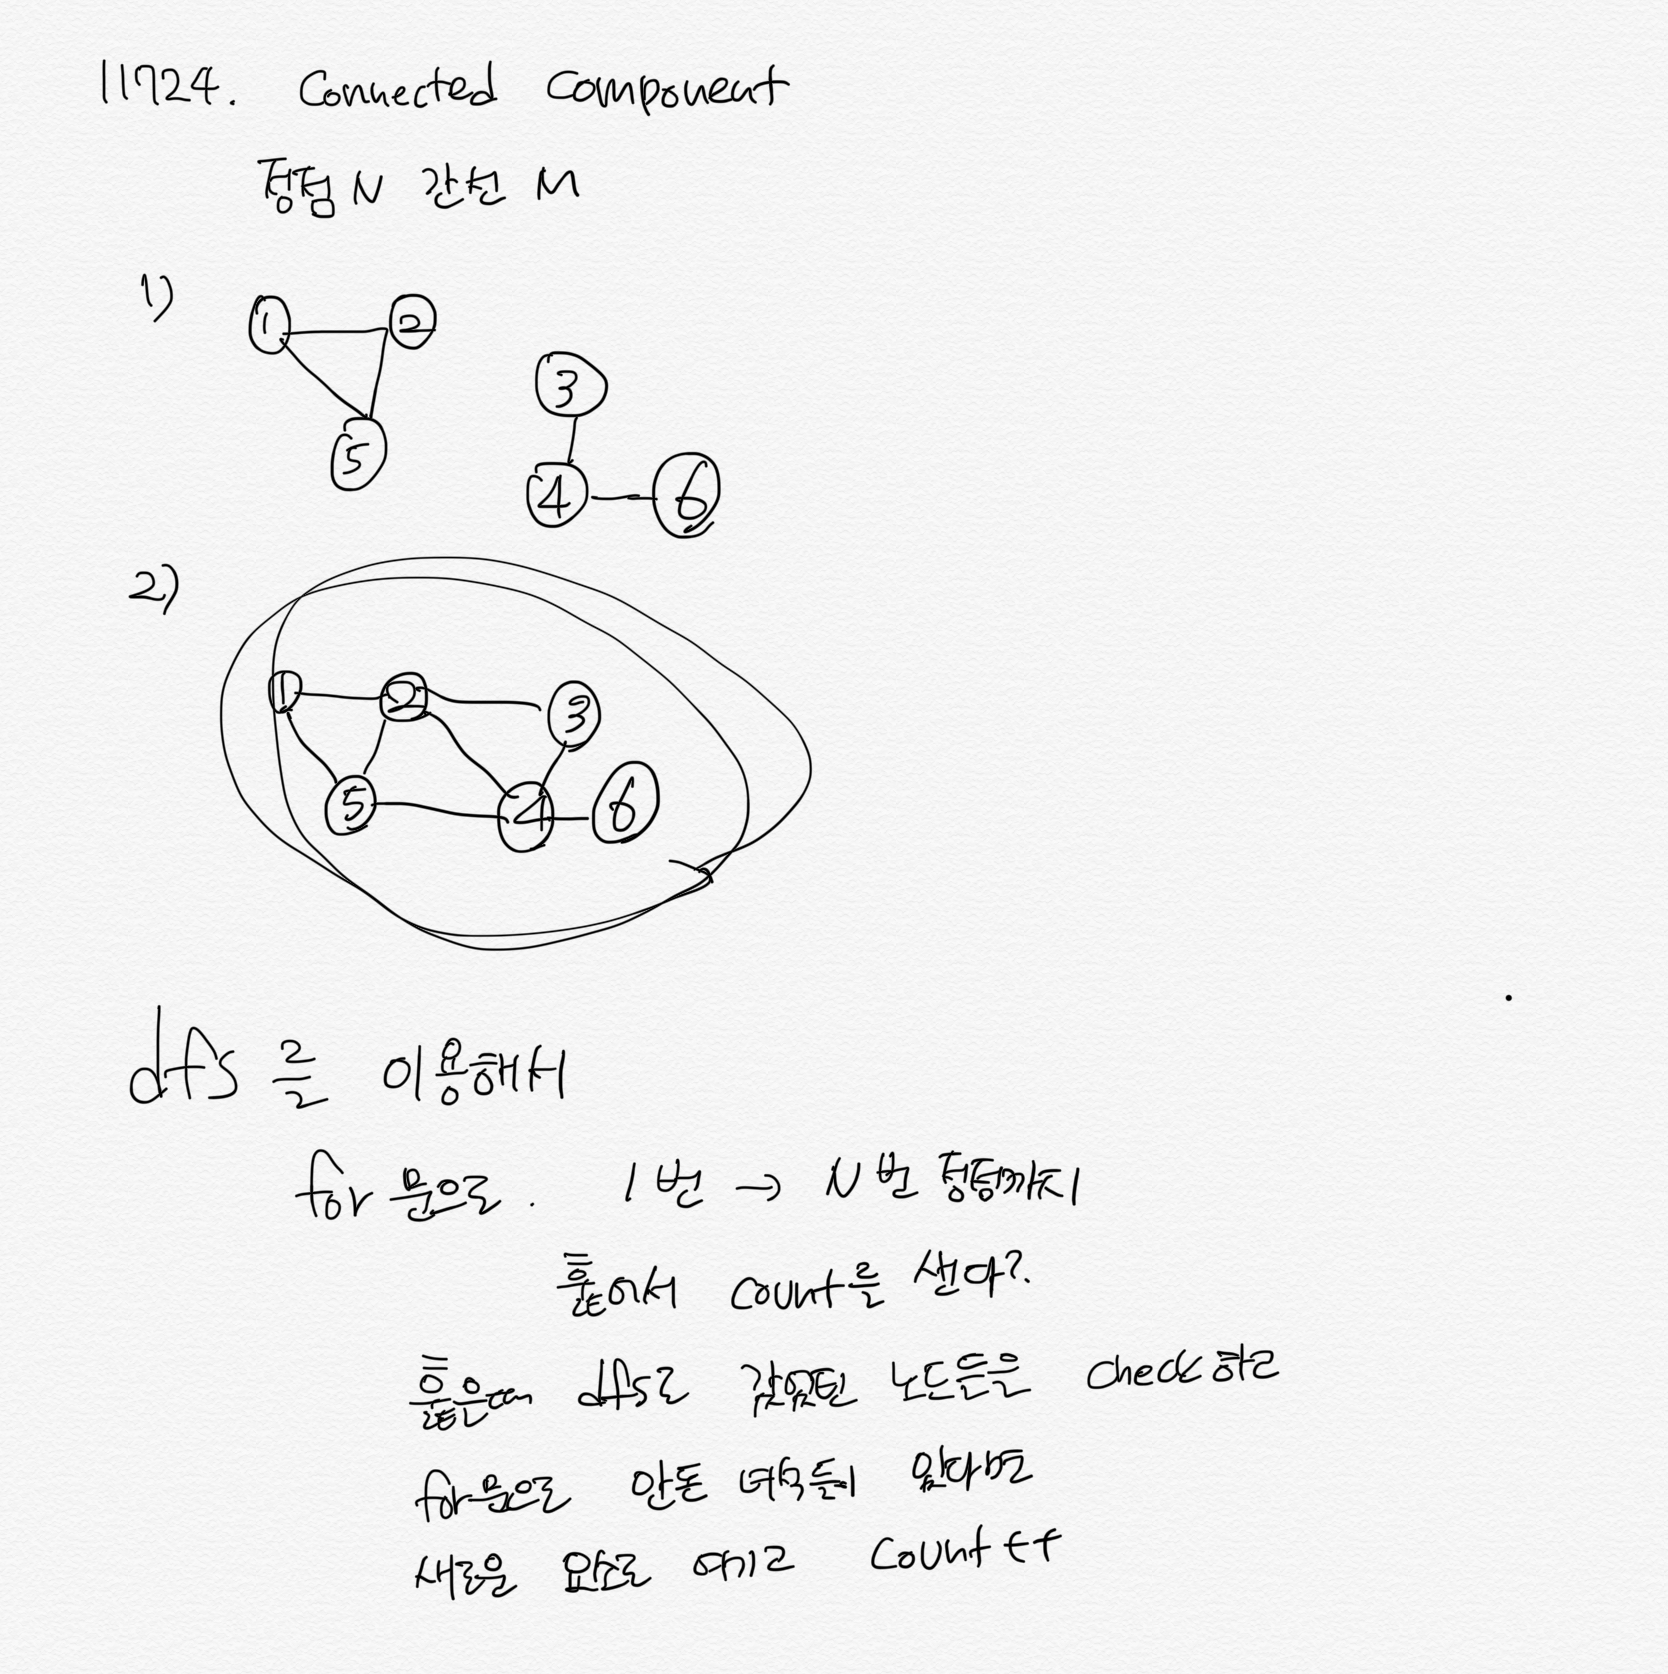 11724. Connected Component
정점 N 간선 M
1)
1 2
3
5
4 6
2)
1 2 3
5 4 6
dfs 를 이용해서
for 문으로. 1번 → N번 정점까지
훑어서 count를 센다?
훑은때 dfs로 갔었던 노드들은 check하고
for문으로 안돈 녀석들이 있다면
새로운 요소로 여기고 count++